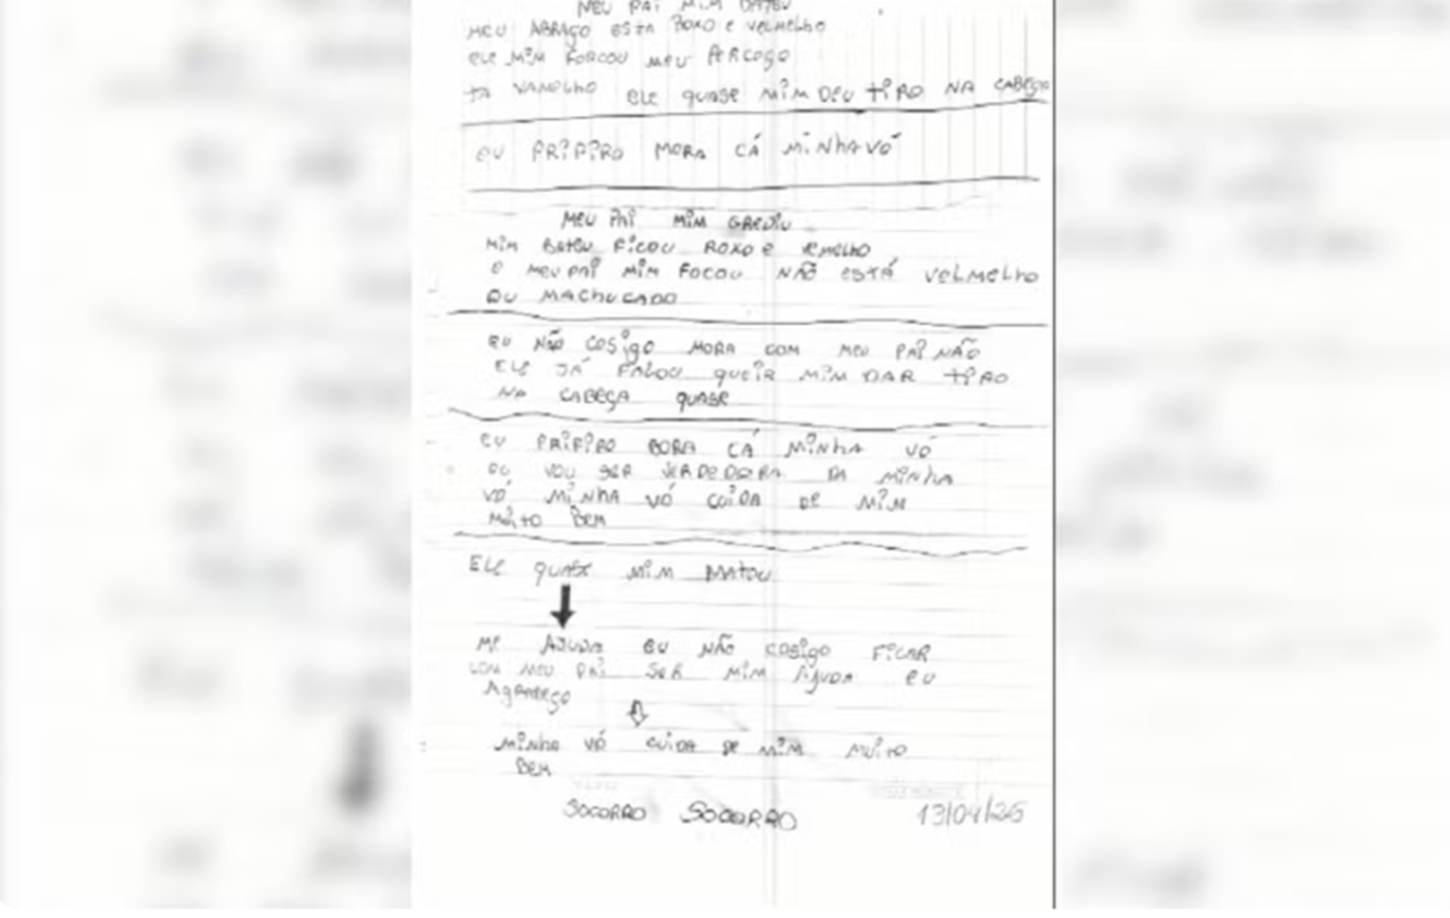 MEU PAI MIM BATEU
MEU ABRAÇO ESTA ROXO E VELMELHO
ELE MIM FORCOU MEU PERCOÇO
TA VAMELHO ELE QUASE MIM DEU TIRO NA CABEÇA
EU PRIFIRO MORA CÁ MINHA VÓ
MEU PAI MIM GREDIU
MIM BATEU FICOU ROXO E VEMELHO
E MEU PAI MIM FOCOU NÃO ESTÁ VELMELHO
OU MACHUCADO
EU NÃO COSIGO MORA COM MEU PAI NÃO
ELE JÁ FALOU QUEIR MIM DAR TIRO
NA CABEÇA QUASE
EU PRIFIRO BORA CÁ MINHA VÓ
EU VOU SER DA MINHA
VÓ MINHA VÓ CUIDA DE MIM
MUITO BEM
ELE QUASE MIM MATOU
ME AJUDA EU NÃO COSIGO FICAR
COM MEU PAI SER MIM AJUDA EU
AGRADEÇO
MINHA VÓ CUIDA DE MIM MUITO
BEM
SOCORRO SOCORRO 13/04/26